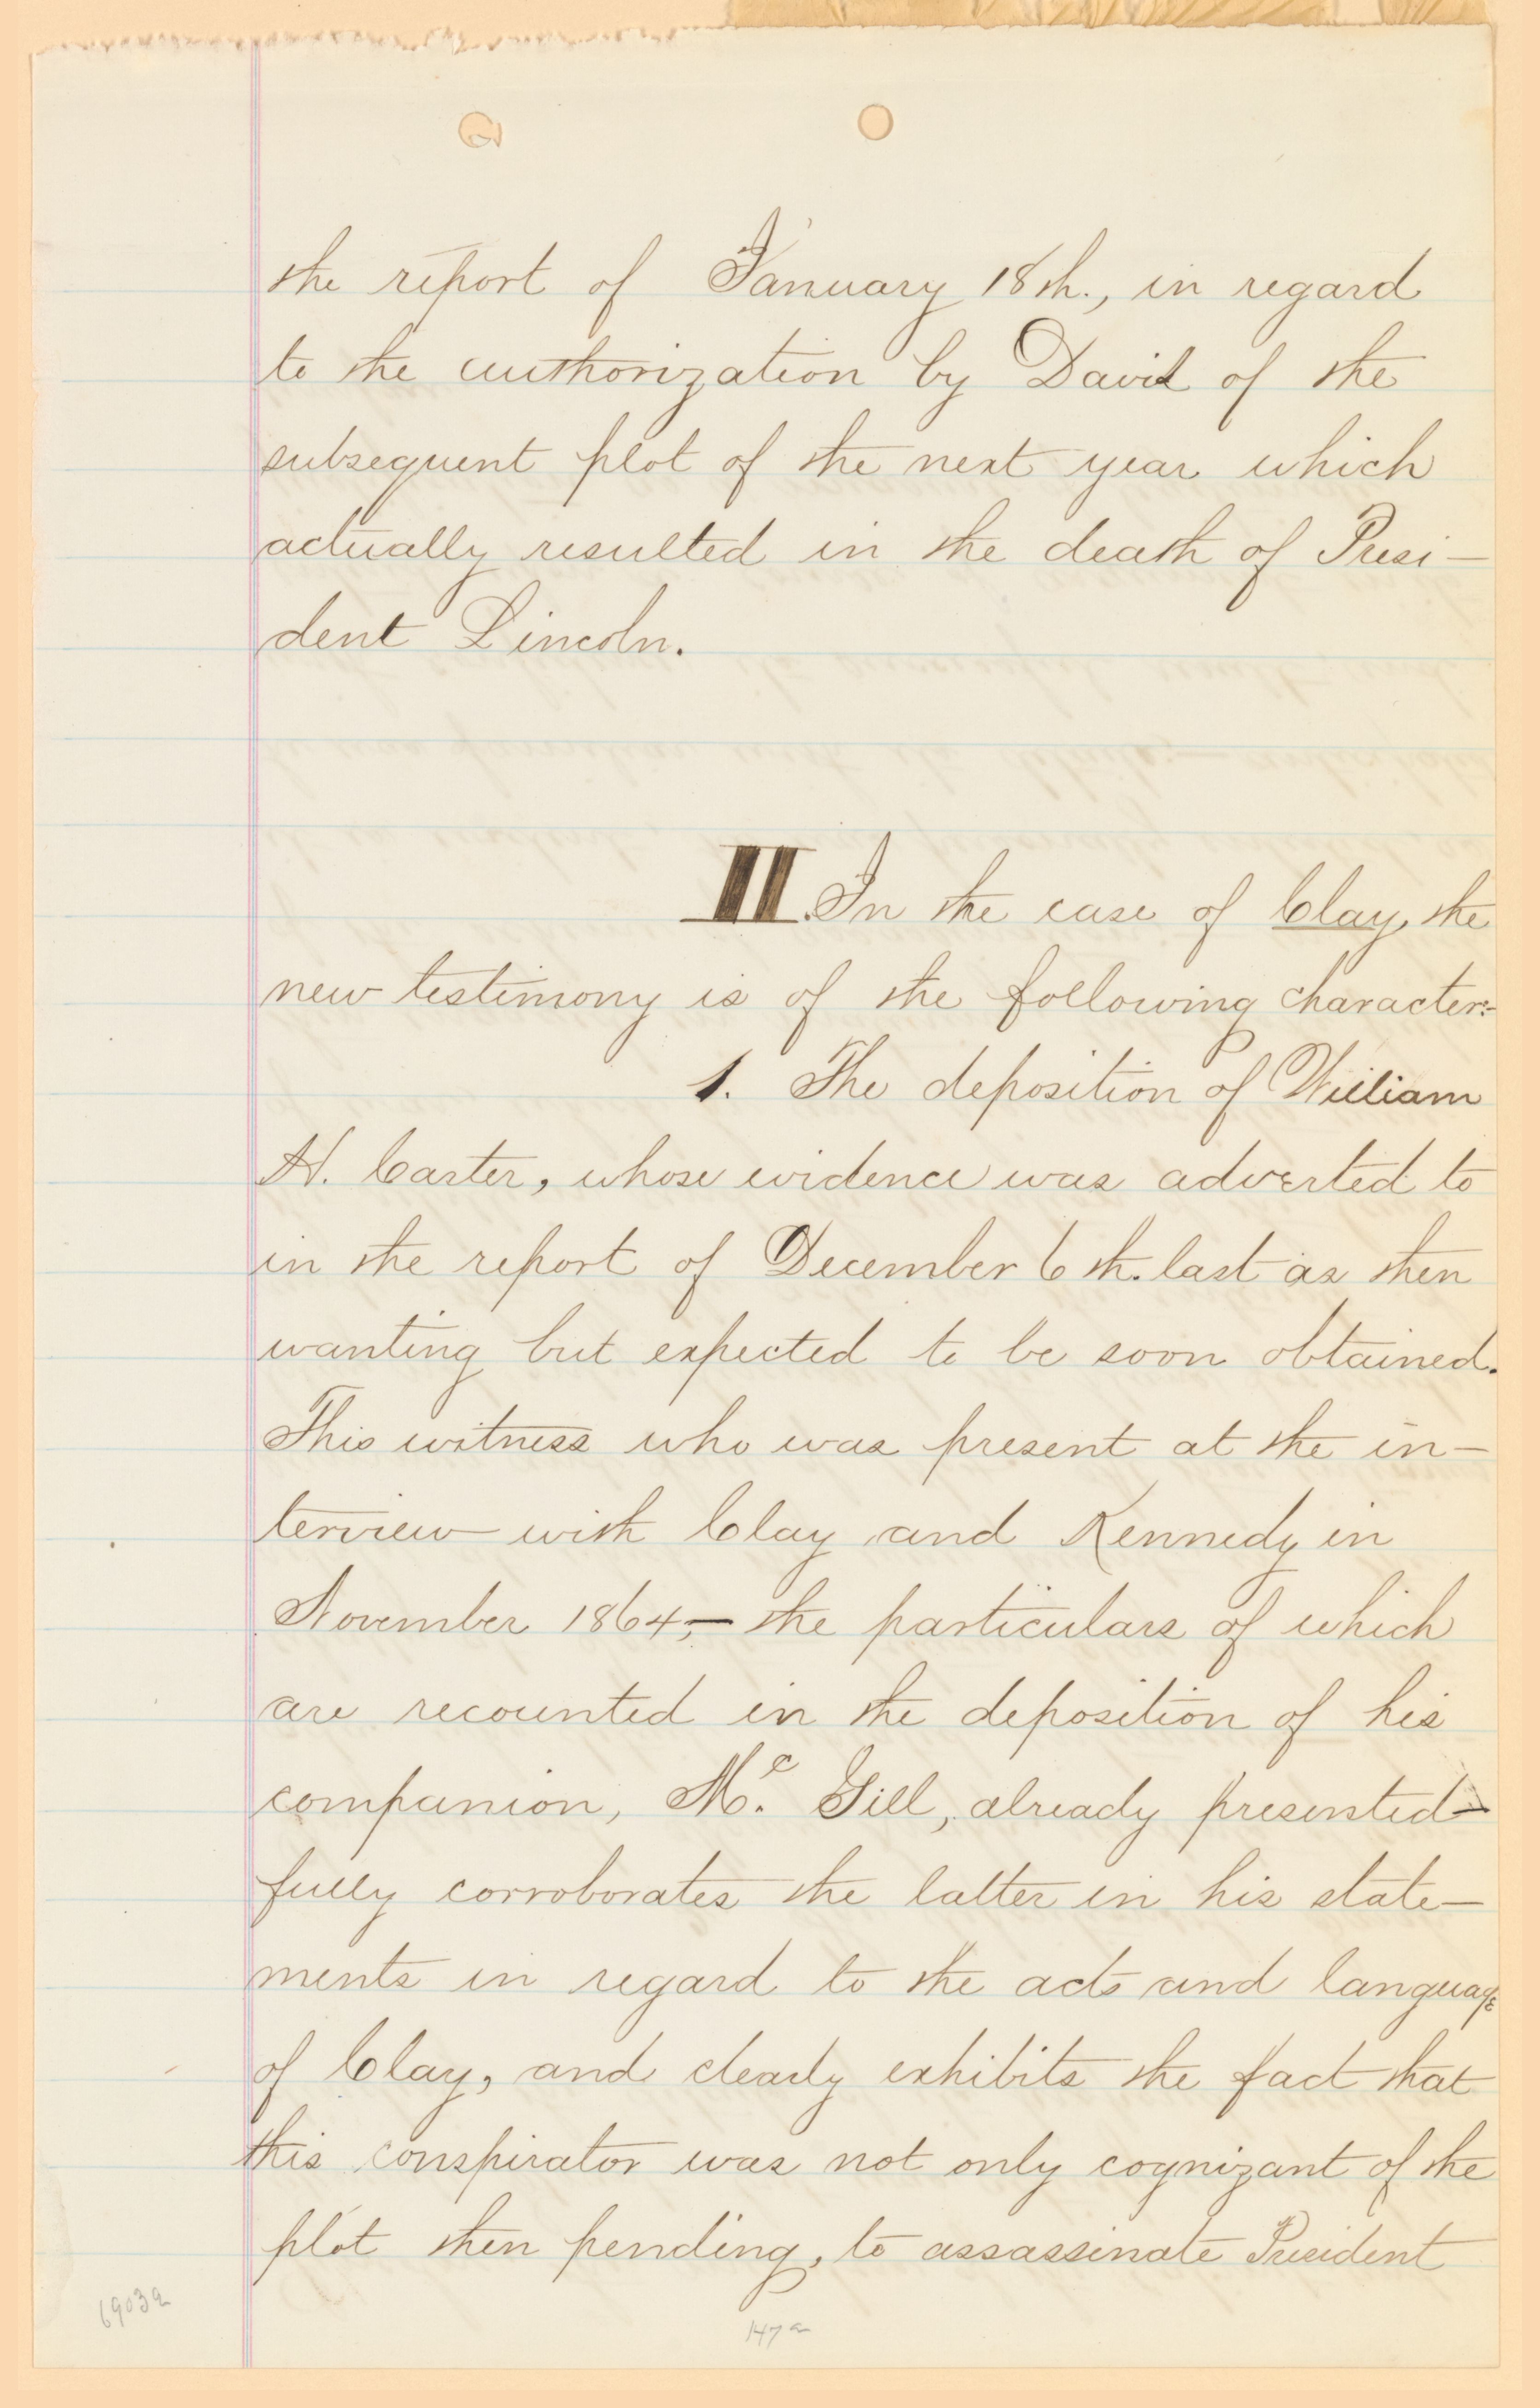 the report of January 18th., in regard
to the authorization by Davis of the
subsequent plot of the next year which
actually resulted in the death of Presi-
dent Lincoln.
II. In the case of Clay, the
new testimony is of the following character:-
1. The deposition of William
H. Carter, whose evidence was adverted to
in the report of December 6th. last as then
wanting but expected to be soon obtained.
This witness who was present at the in-
terview with Clay and Kennedy in
November 1864,- the particulars of which
are recounted in the deposition of his
companion, Mc. Gill, already presented-
fully corroborates the latter in his state-
ments in regard to the acts and language
of Clay, and clearly exhibits the fact that
this conspirator was not only cognizant of the
plot then pending, to assassinate President
6903a
147a